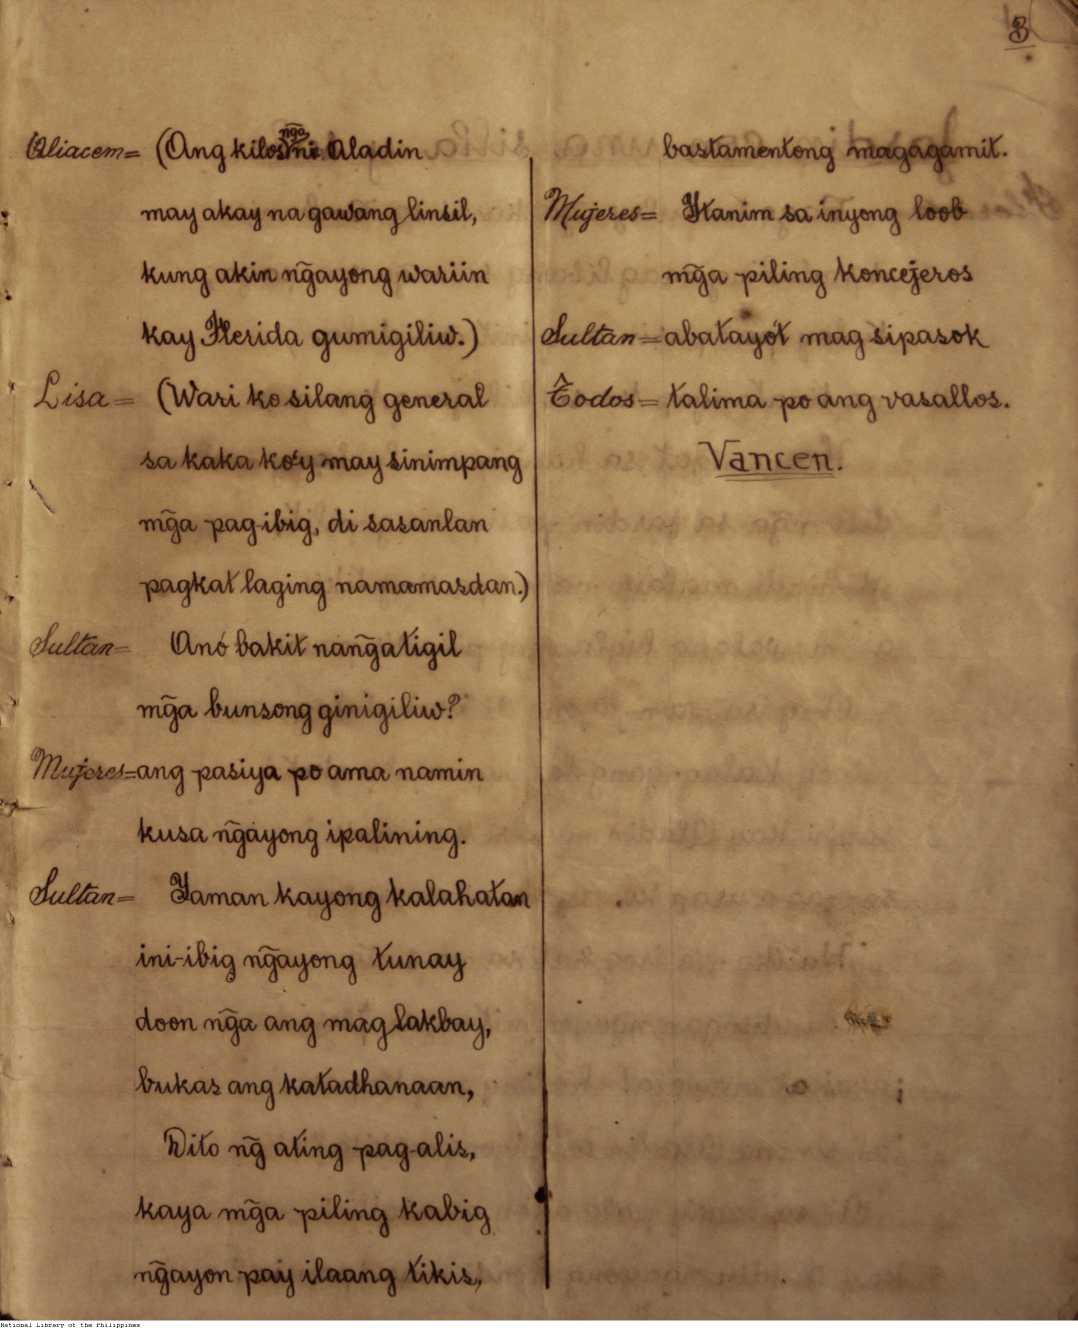 3
Aliacem= (Ang kilos n̄ga ni Aladin
may akay na gawang linsil,
kung akin n̄gayong wariin
kay Flerida gumigiliw.)
Lisa= (Wari ko silang general
sa kaka ko'y may sinimpang
m̄ga pag-ibig, di sasanlan
pagkat laging namamasdan.)
Sultan= Anó bakit nan̄gatigil
m̄ga bunsong ginigiliw?
Mujeres=ang pasiya po ama namin
kusa n̄gayong ipalining.
Sultan= Yaman kayong kalahatan
ini-ibig n̄gayong tunay
doon n̄ga ang mag lakbay,
bukas ang katadhanaan,
Dito n̄g ating pag-alis,
kaya m̄ga piling kabig
n̄gayon pay ilaang tikis,
bastamentong magagamit.
Mujeres= Itanim sa inyong loob
m̄ga piling koncejeros
Sultan= abatayó't mag sipasok
Todos= talima po ang vasallos.
Vancen.
National Library of the Philippines